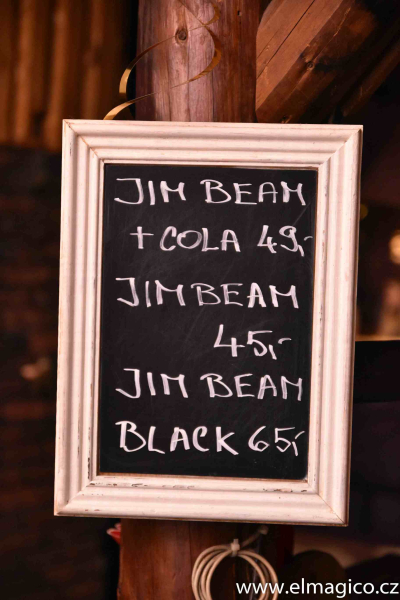 JIM BEAM
+ COLA 49,-
JIM BEAM
45,-
JIM BEAM
BLACK 65,-
www.elmagico.cz